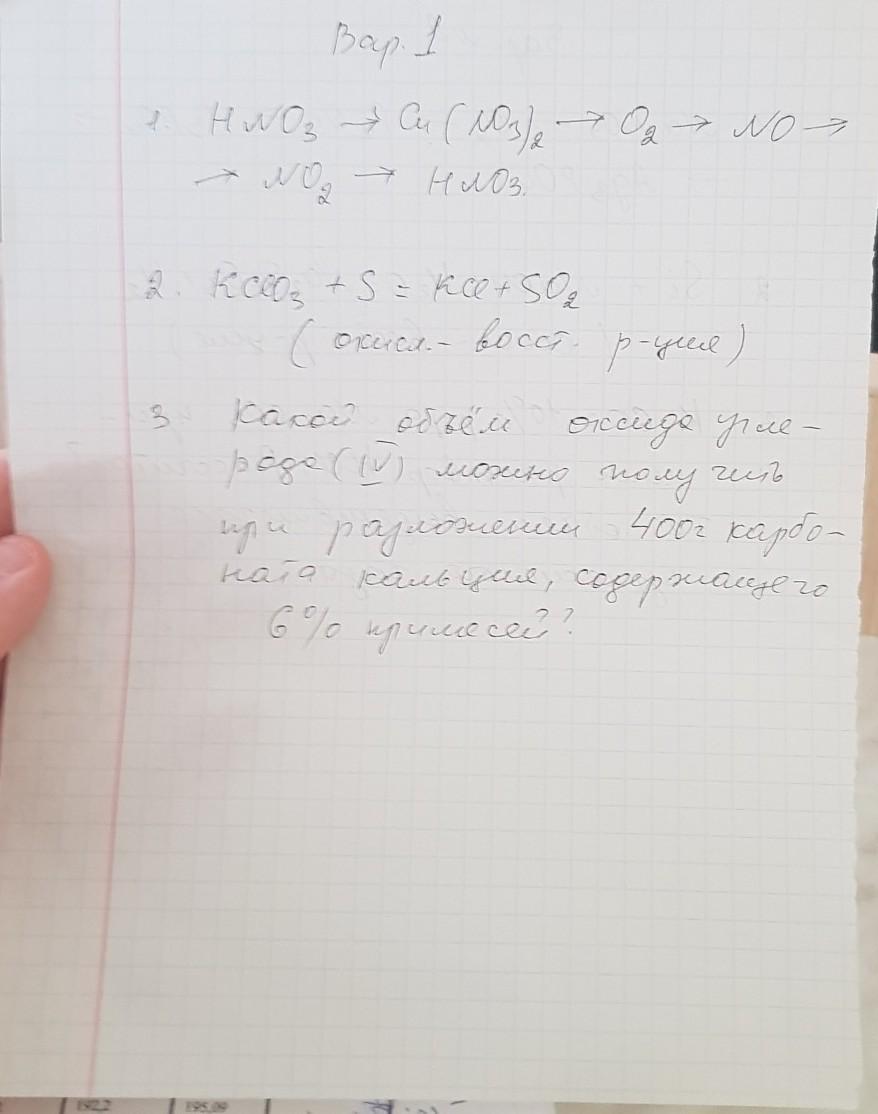 Вар. 1
1. HNO3 → Cu(NO3)2 → O2 → NO →
→ NO2 → HNO3.
2. KClO3 + S = KCl + SO2
(окисл.- восст. р-ция)
3 Какой объём оксида угле-
рода (IV) можно получить
при разложении 400г карбо-
ната кальция, содержащего
6% примесей??
192,2 195,09